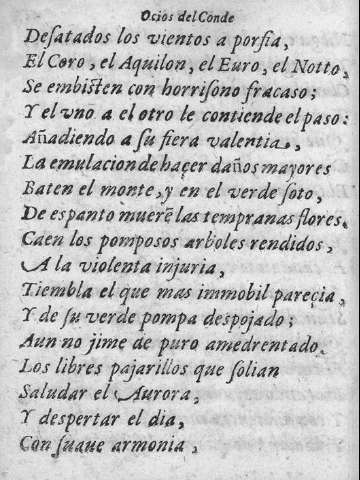 Ocios del Conde
Deſatados los vientos a porfia,
El Coro, el Aquilon, el Euro, el Notto,
Se embiſten con horriſono fracaso;
Y el vno a el otro le contiende el paso:
Añadiendo a ſu fiera valentia,
La emulacion de haçer daños mayores
Baten el monte, y en el verde ſoto,
De espanto muerẽ las tempranas flores,
Caen los pomposos arboles rendidos,
A la violenta injuria,
Tiembla el que mas immobil pareçia,
Y de ſu verde pompa despojado;
Aun no jime de puro amedrentado.
Los libres pajarillos que ſolian
Saludar el Aurora,
Y despertar el dia,
Con ſuaue armonia,